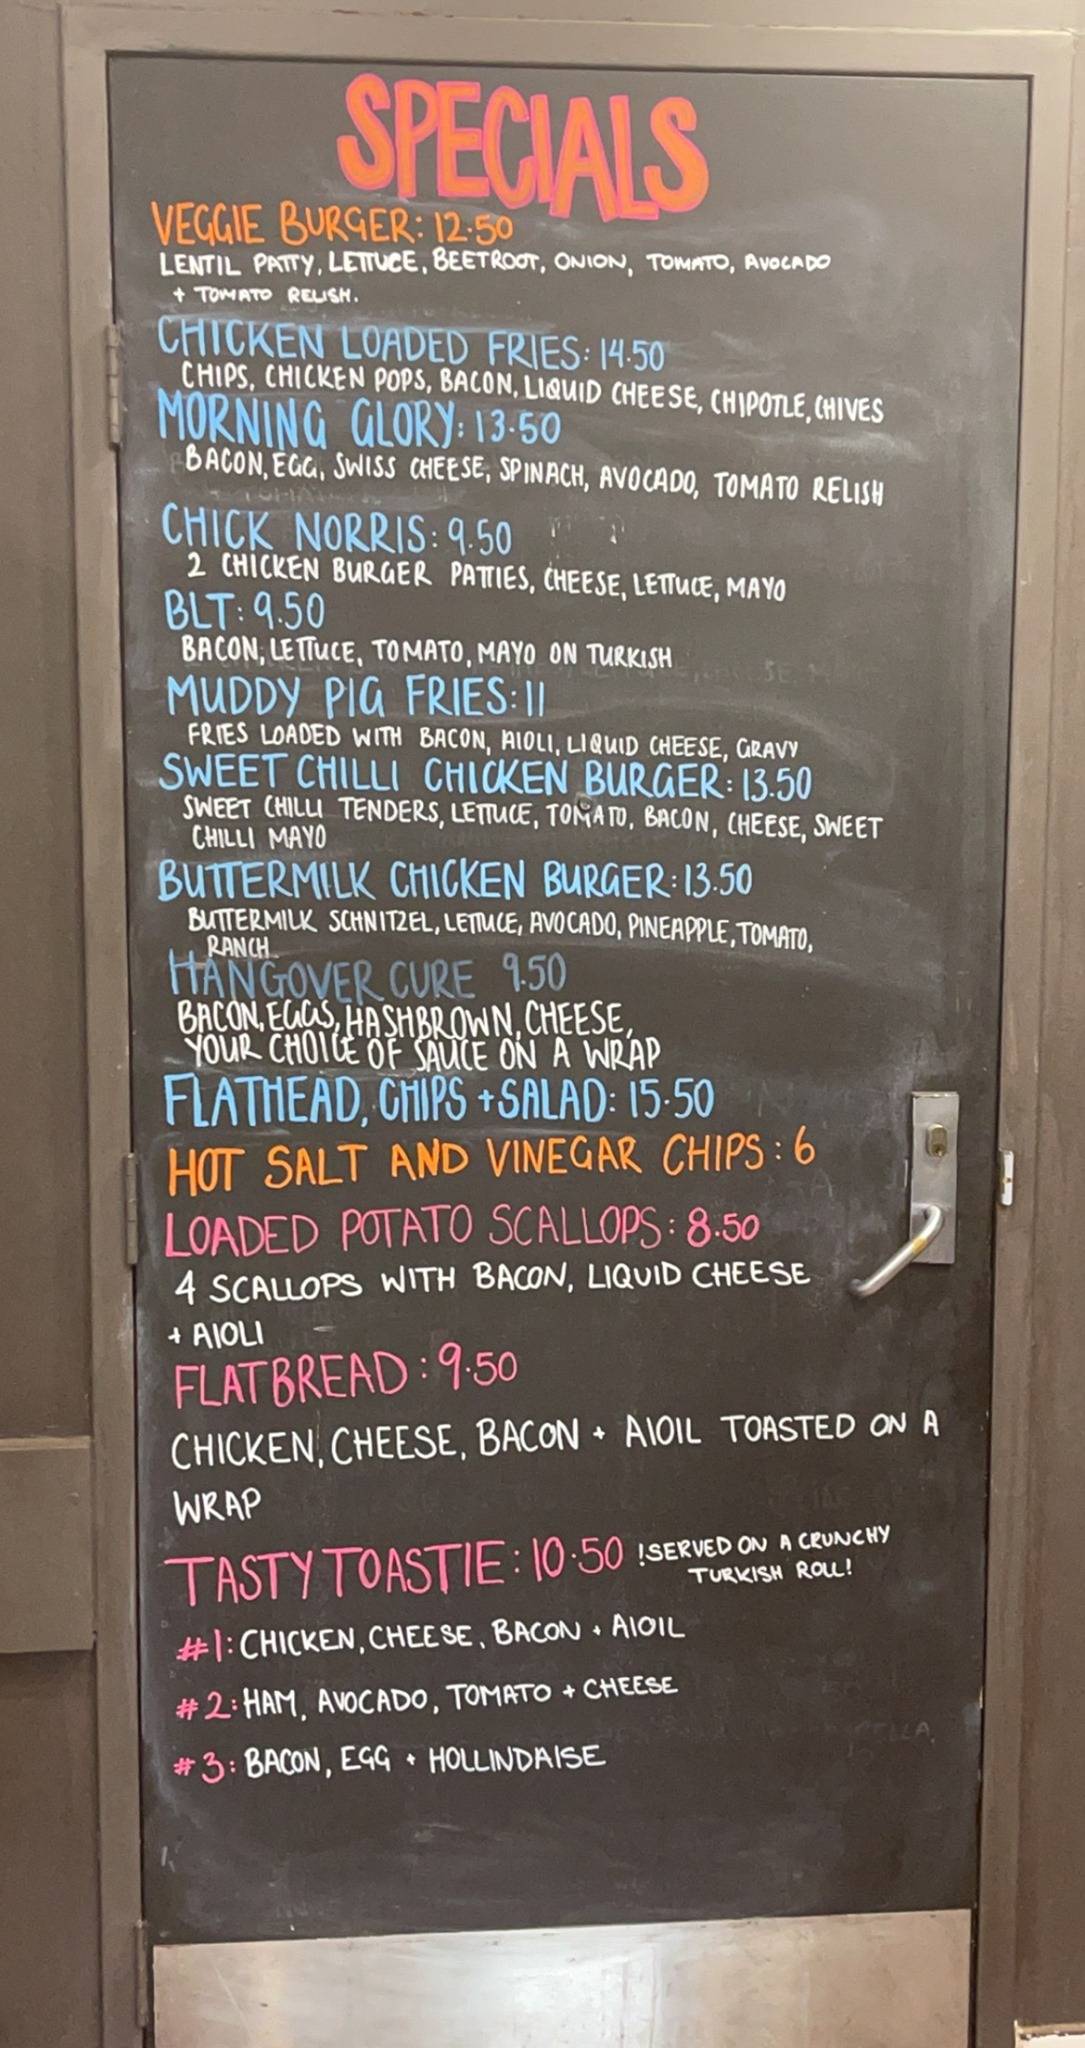 SPECIALS
VEGGIE BURGER: 12.50
LENTIL PATTY, LETTUCE, BEETROOT, ONION, TOMATO, AVOCADO
+ TOMATO RELISH.
CHICKEN LOADED FRIES: 14.50
CHIPS, CHICKEN POPS, BACON, LIQUID CHEESE, CHIPOTLE, CHIVES
MORNING GLORY: 13.50
BACON, EGG, SWISS CHEESE, SPINACH, AVOCADO, TOMATO RELISH
CHICK NORRIS: 9.50
2 CHICKEN BURGER PATTIES, CHEESE, LETTUCE, MAYO
BLT: 9.50
BACON, LETTUCE, TOMATO, MAYO ON TURKISH
MUDDY PIG FRIES: 11
FRIES LOADED WITH BACON, AIOLI, LIQUID CHEESE, GRAVY
SWEET CHILLI CHICKEN BURGER: 13.50
SWEET CHILLI TENDERS, LETTUCE, TOMATO, BACON, CHEESE, SWEET
CHILLI MAYO
BUTTERMILK CHICKEN BURGER: 13.50
BUTTERMILK SCHNITZEL, LETTUCE, AVOCADO, PINEAPPLE, TOMATO,
RANCH
HANGOVER CURE 9.50
BACON, EGGS, HASHBROWN, CHEESE,
YOUR CHOICE OF SAUCE ON A WRAP
FLATHEAD, CHIPS + SALAD: 15.50
HOT SALT AND VINEGAR CHIPS: 6
LOADED POTATO SCALLOPS: 8.50
4 SCALLOPS WITH BACON, LIQUID CHEESE
+ AIOLI
FLATBREAD: 9.50
CHICKEN, CHEESE, BACON + AIOIL TOASTED ON A
WRAP
TASTY TOASTIE: 10.50 !SERVED ON A CRUNCHY
TURKISH ROLL!
#1: CHICKEN, CHEESE, BACON + AIOIL
#2: HAM, AVOCADO, TOMATO + CHEESE
#3: BACON, EGG + HOLLINDAISE